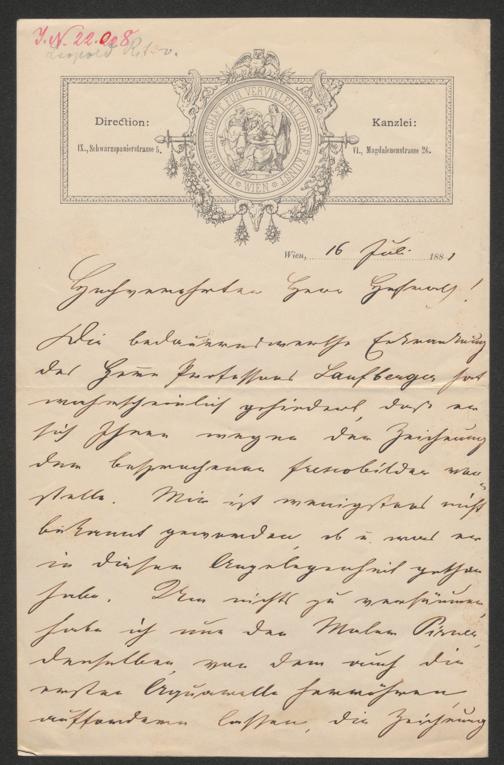 J.N. 22.008
Direction:
IX., Schwarzspanierstrasse 5.
GESELLSCHAFT FÜR VERVIELFÄLTIGENDE KUNST
WIEN
Kanzlei:
VI., Magdalenenstrasse 26.
Wien, 16 Juli 1881
Hochverehrter Herr Hofrath!
Die bedauernswerthe Erkrankung
des Herrn Professors Laufberger hat
wahrscheinlich gehindert, daß er
sich Ihnen wegen der Zeichnung
der besprochenen Frescobilder vor-
stelle. Mir ist wenigstens nicht
bekannt geworden, ob u. was er
in dieser Angelegenheit gethan
habe. Um nichts zu versäumen,
habe ich nun den Maler
denselben, von dem auch die
ersten Aquarelle herrühren,
auffordern lassen, die Zeichnung